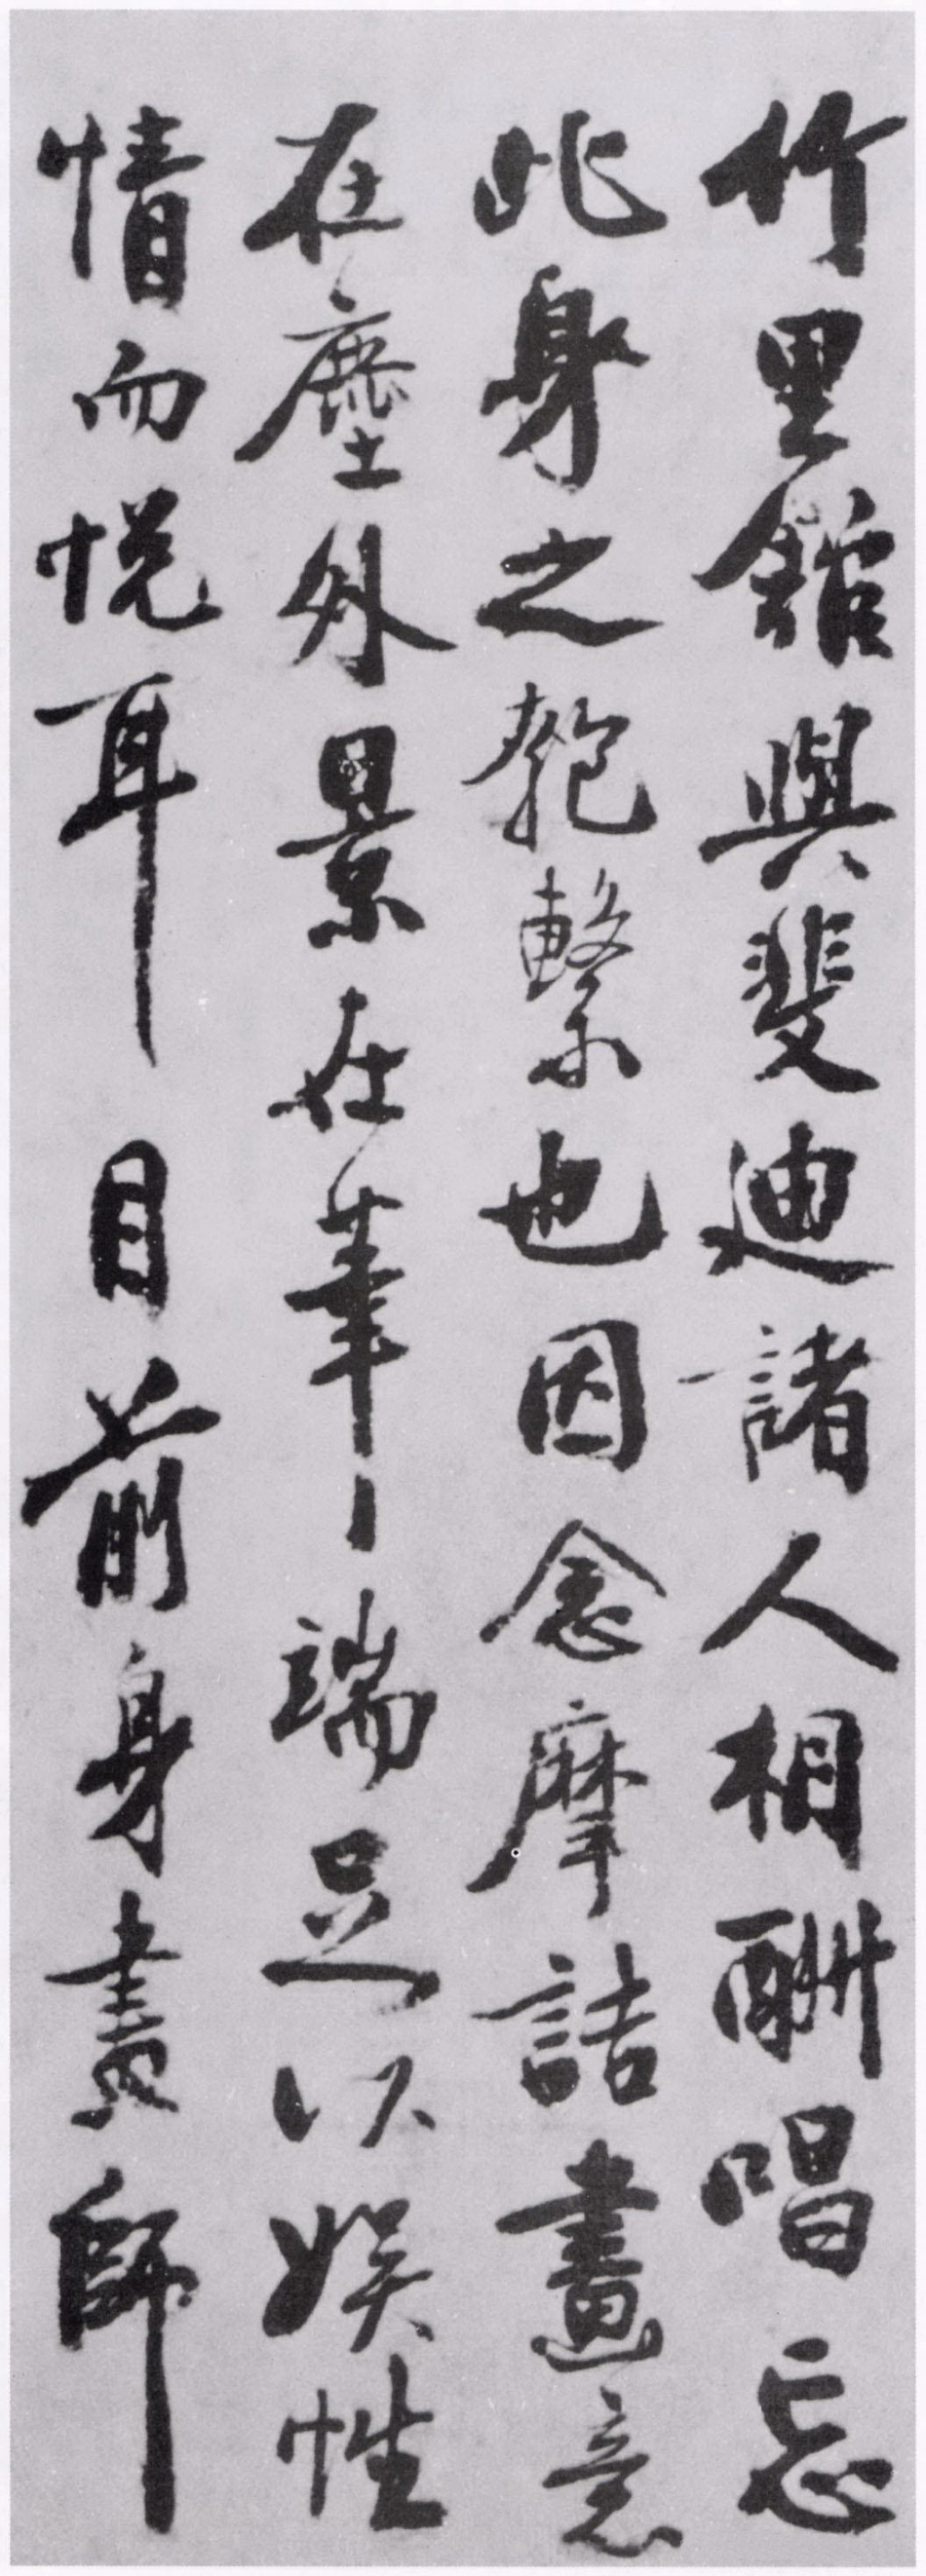 竹里館與斐迪諸人相酬唱忘
此身之匏繫也因念摩詰畫意
在塵外景在筆端足以娛性
情而悅耳目前身畫師